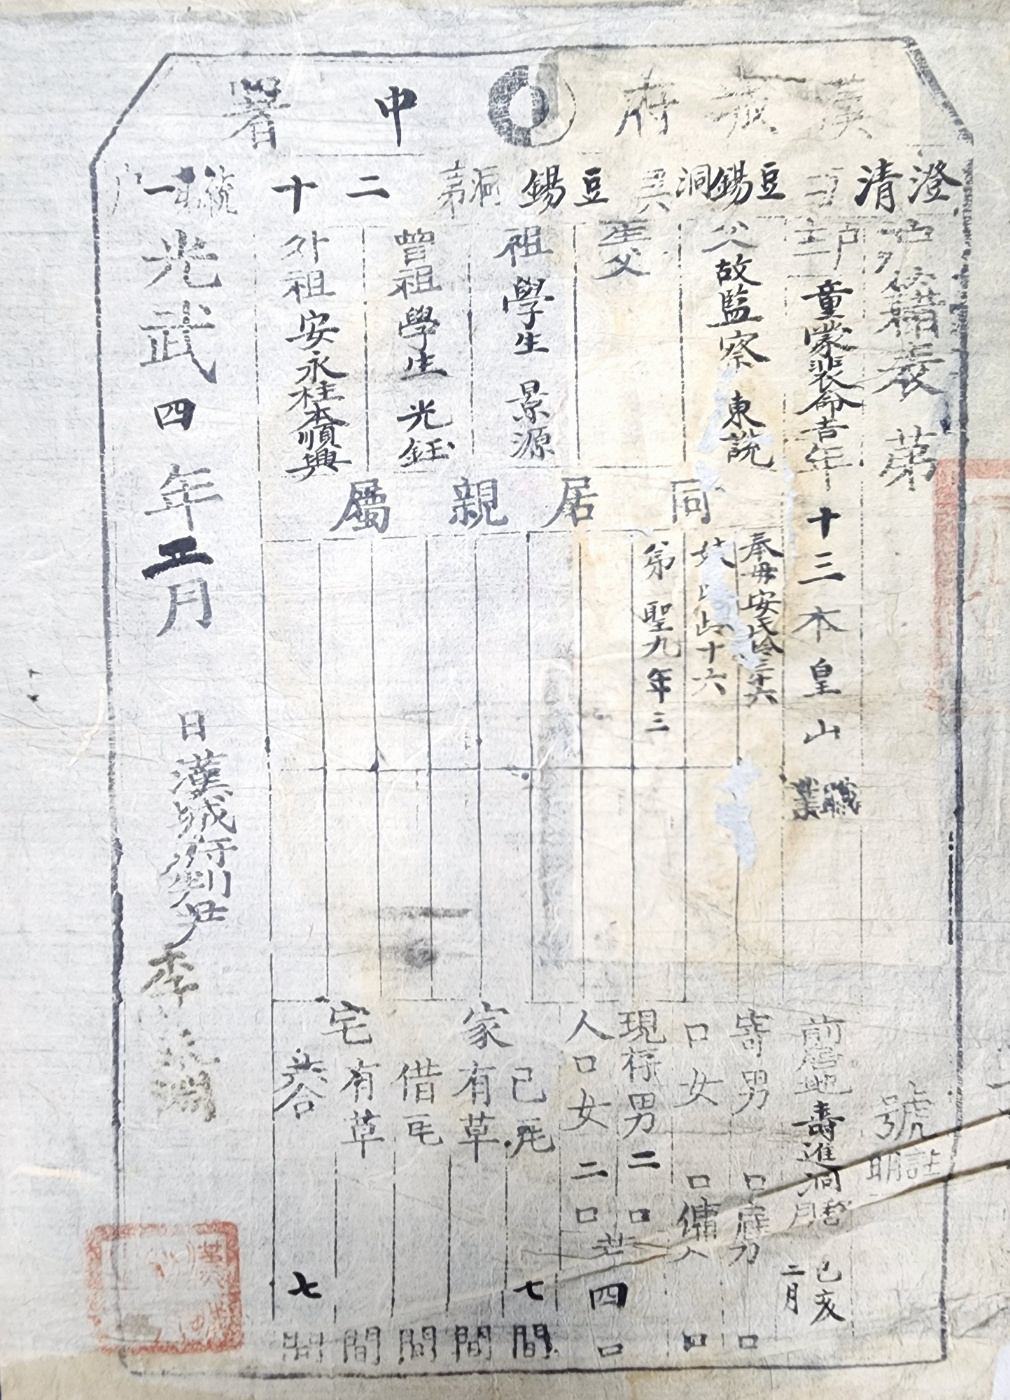 漢城府 中署
澄清坊 豆錫洞契 豆錫洞 第二十統一戶
戶籍表 第 號
註明
戶主 童蒙裴命吉 年十三 本皇山 職業
前居地 壽進洞 月 己亥二月
父 故監察 東說
生父
祖 學生 景源
曾祖 學生 光鈺
外祖 安永柱 本順興
同居親屬
奉母安氏 齡三十六
十六
弟 聖九 年三
寄口 男 口 雇 口
女 口 傭人 口
現存人口 男 二口
女 二口 共 四口
家宅
己有 瓦 七間
草 間
借有 瓦 間
草 間
共合 七間
光武四年二月 日 漢城府判尹 李